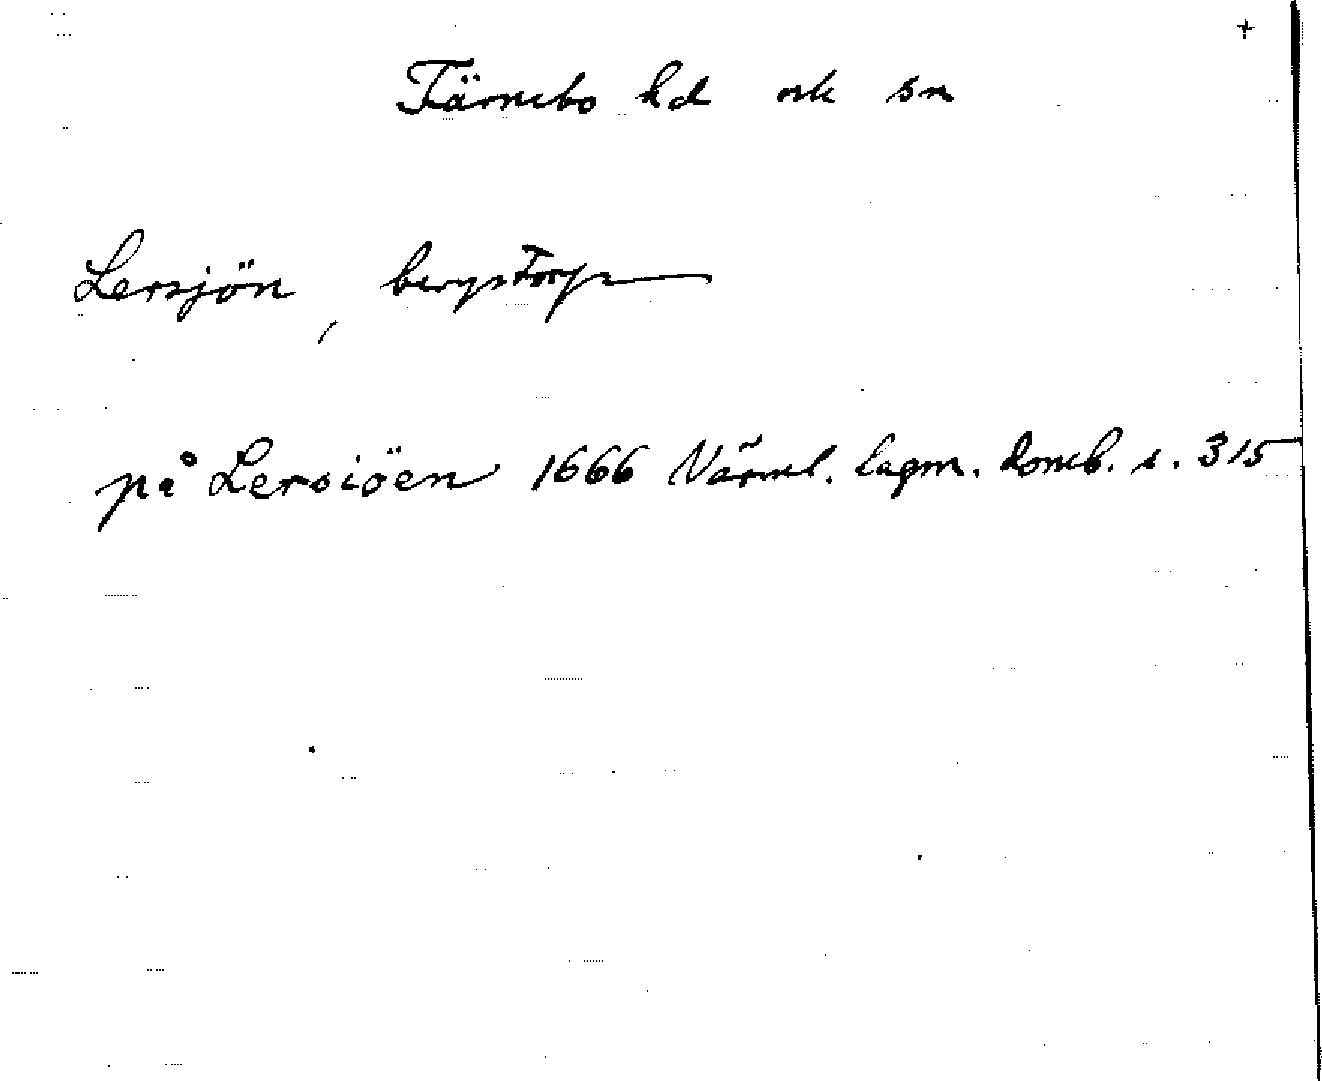 +
Färnebo hd ock sn
Lersjön, bergstorp
på Lersiöen 1666 Värml. lagm. domb. s. 315